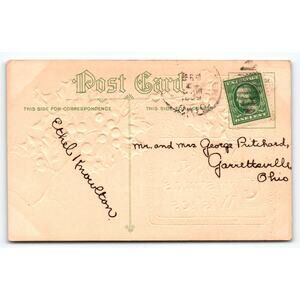 Post Card
THIS SIDE FOR CORRESPONDENCE
THIS SIDE FOR ADDRESS
ONE CENT
Ethel Knowlton.
Mr. and mrs George Pritchard,
Garrettsville,
Ohio